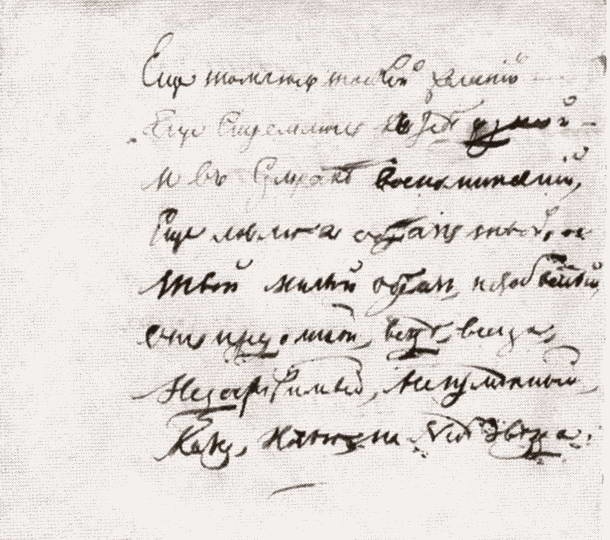 Еще томлюсь тоской желаній —
Еще Стремлюсь къ тебѣ душой —
И въ Сумракѣ воспоминаній,
Еще ловлю я образъ твой,
Твой милый образъ, незабвенный,
онъ предо мной, вездѣ, всегда,
Недостижимый, неизмѣнный,
Какъ, ночью на небѣ звѣзда.